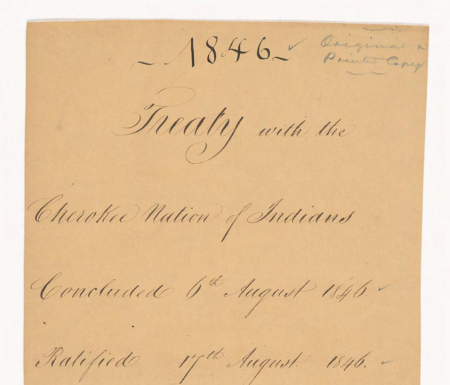 - 1846 -
Original &
Printed Copy
Treaty with the
Cherokee Nation of Indians
Concluded 6th August 1846
Ratified 17th August 1846.